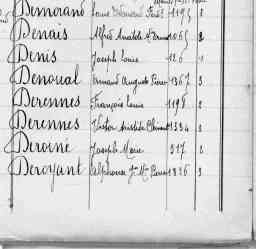 Demorand Louis Édouard 1195 2
Denais Alfred Anatole 1065 2
Denis Joseph Louis 126 1
Denoual Armand Auguste Pierre 1367 3
Derennes François Louis 1198 2
Derennes Victor Aristide Clément 1394 3
Deroiné Joseph Marie 317 2
Deroyant Alphonse Jn Mie Pierre 1326 3